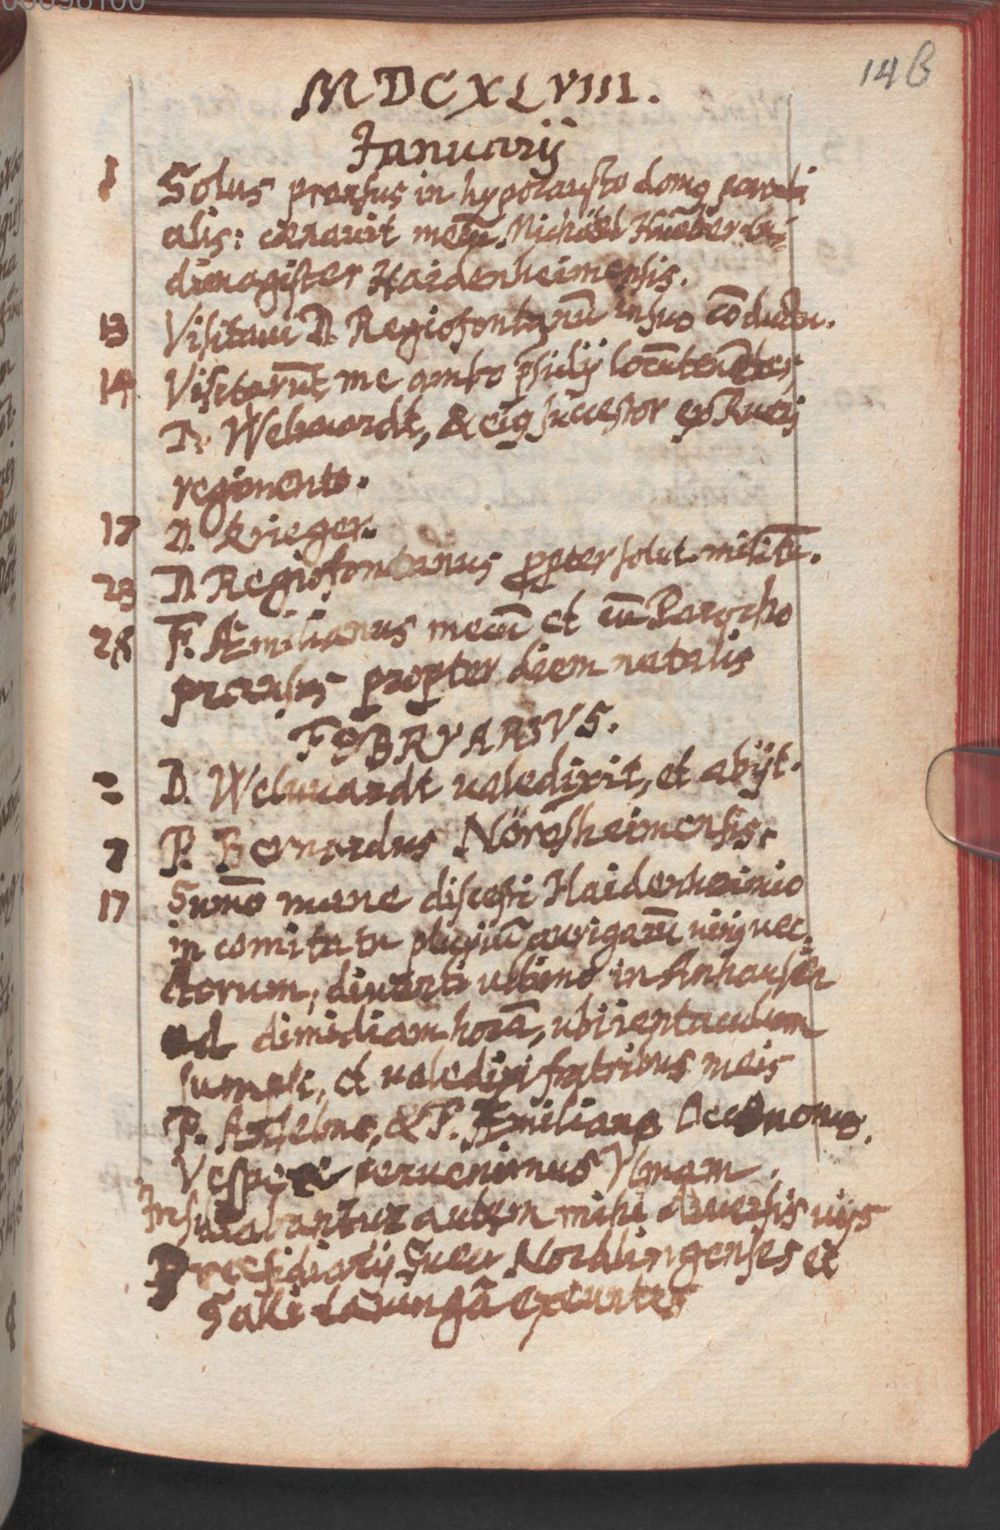 146
MDCXLVIII.
Januarij
1 Solus pransus in hypocausto domꝰ parochi
alis: cœnavit mecũ Michäel Hũber lu-
dimagister Haidenheimensis.
13 Visitavi D. Regiofontanũ in suo cõductu.
14 Visitarũt me ambo p̃sidij locũtenẽtes
D. Welwardt, & eiꝰ successor ex
regimento.
17 D. Krieger.
23 D. Regiofontanus propter solut. militũ.
28 F. Æmilianus mecũ et cũ Parocho
pransus propter diem natalis
FEBRVARIVS.
= D. Welwardt valedixit, et abijt.
7 P. Bernardus Nöresheimensis.
17 Sum̃o mane discessi Haidenheimio
in comitatu pluriũ aurigarũ vec-
torum, diverti ultimo in Anhausen
ad dimidiam horã, ubi ientaculum
sumpsi, et valedixi fratribus meis
P. Anselmo, & P. Æmiliano Oeconomo.
Vespere pervenimus Vlmam.
Insidiabantur autem mihi diversis vijs
Præsidiarij Sueci Nordlingenses et
Galli Lavingã exeuntes